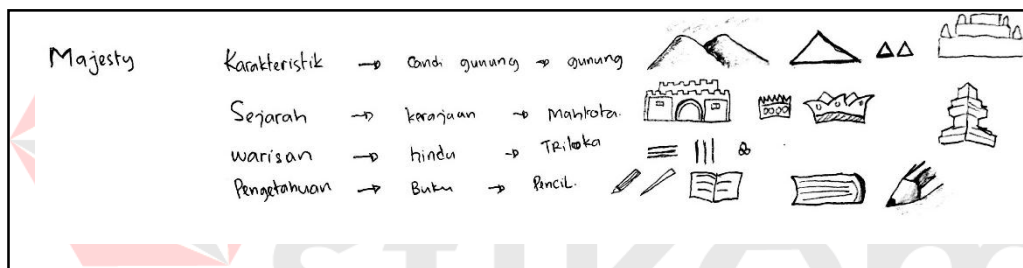 Majesty Karakteristik → Candi gunung → gunung
Sejarah → kerajaan → Mahkota.
warisan → hindu → TRiloka
Pengetahuan → Buku → Pencil.